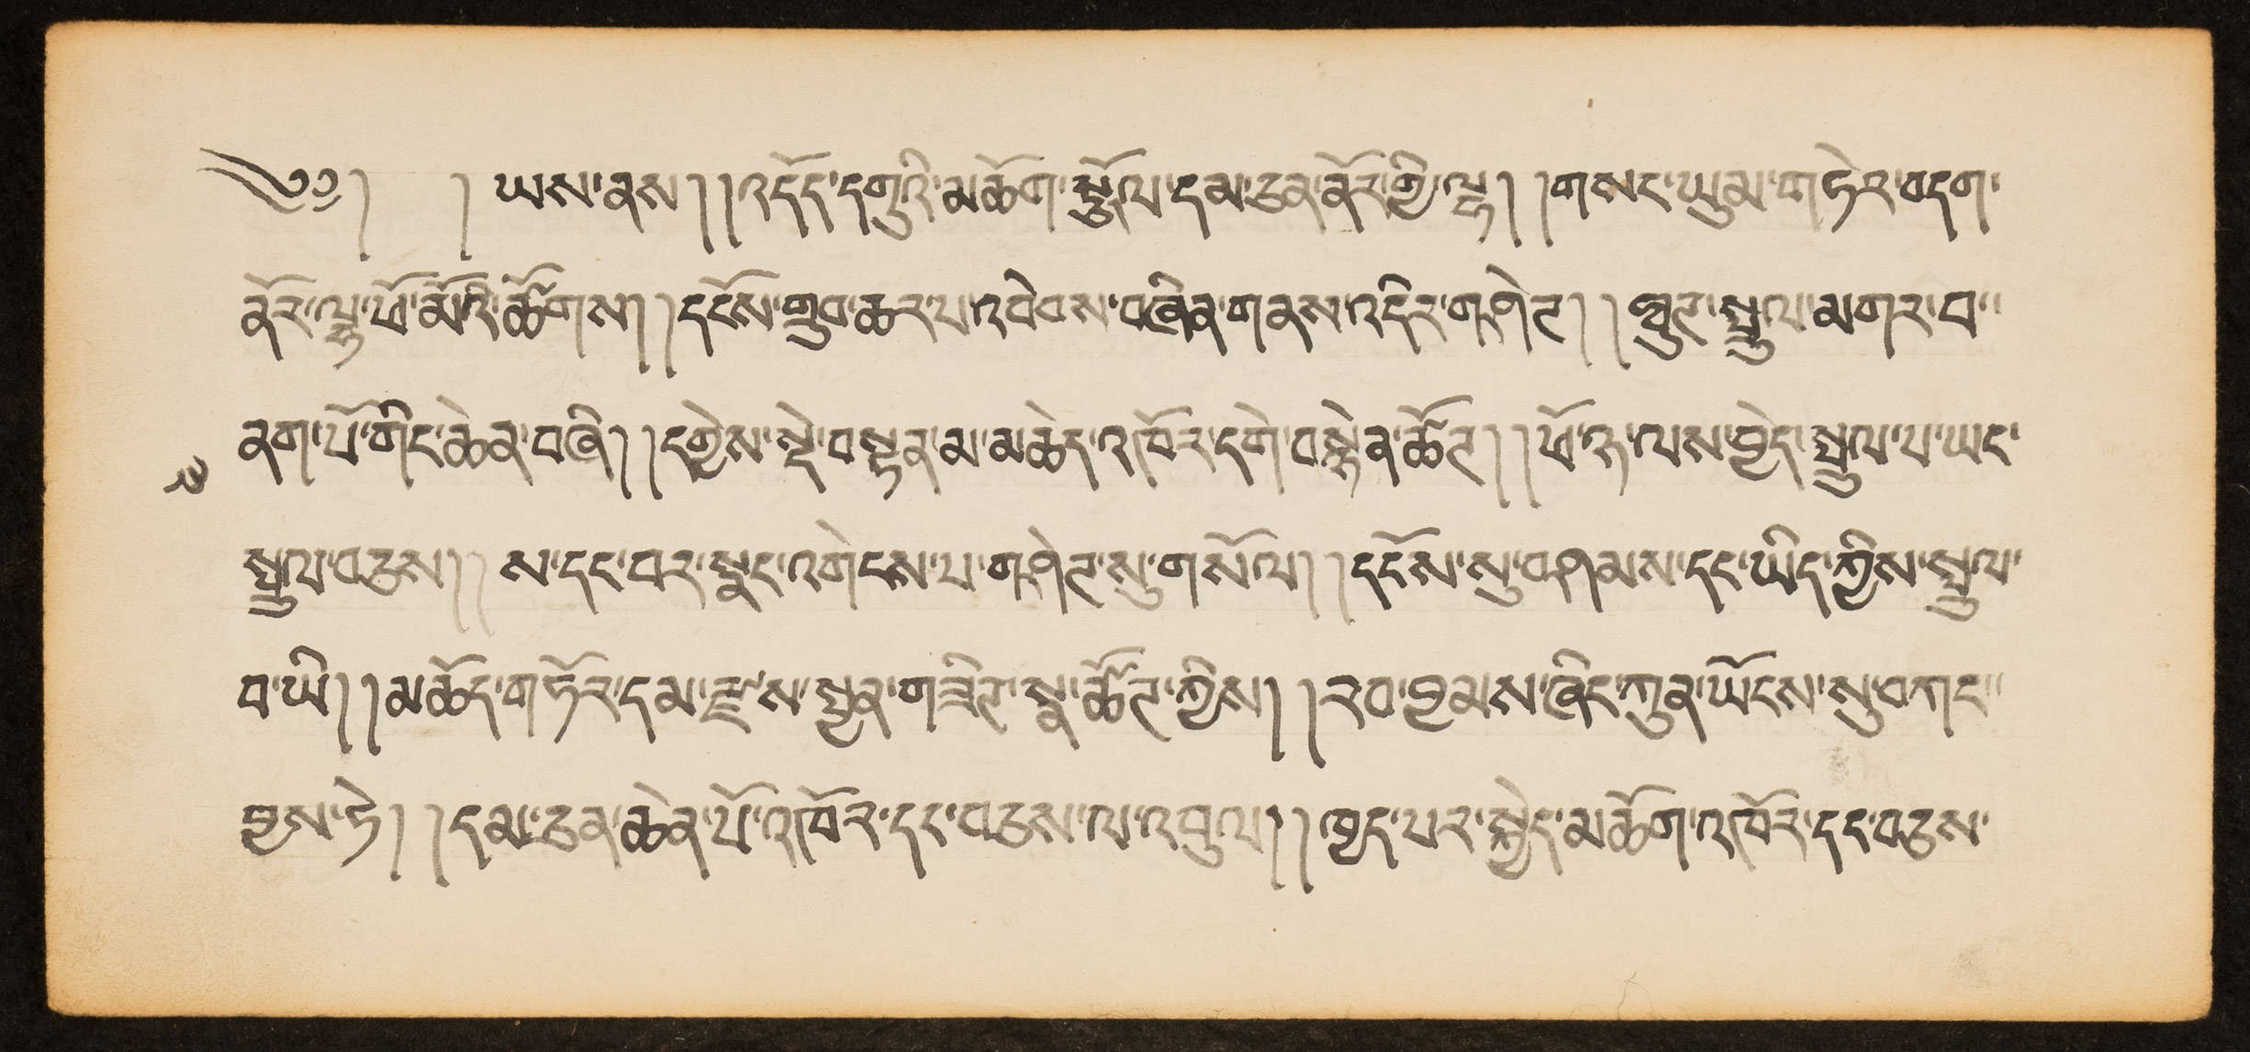 ༄༅། །ཡས་ནས། །འདོད་དགུའི་མཆོག་སྩོལ་དམ་ཅན་ནོར་གྱི་ལྷ། །གསང་ཡུམ་གཏེར་བདག་
ནོར་ལྷ་ཕོ་མོའི་ཚོགས། །དངོས་གྲུབ་ཆར་པ་འབེབས་བཞིན་གནས་འདིར་གཤེགས། །ཐུགས་སྤྲུལ་མགར་བ་
ནག་པོ་གིང་ཆེན་བཞི། །དགྱེས་སྡེ་བསྟན་མ་མཆེད་འཁོར་དགེ་བསྙེན་ཚོགས། །ཕོ་ཉ་ལས་བྱེད་སྤྲུལ་པ་ཡང་
སྤྲུལ་བཅས། །ས་དང་བར་སྣང་འགེངས་པ་གཤེགས་སུ་གསོལ། །དངོས་སུ་བཤམས་དང་ཡིད་ཀྱིས་སྤྲུལ་
བ་ཡི། །མཆོད་གཏོར་དམ་རྫས་སྤྱན་གཟིགས་སྣ་ཚོགས་ཀྱིས། །རབ་འབྱམས་ཞིང་ཀུན་ཡོངས་སུ་བཀང་
བྱས་ཏེ། །དམ་ཅན་ཆེན་པོ་འཁོར་དང་བཅས་ལ་འབུལ། །ཁྱད་པར་སྐྱེད་མཚོག་འཁོར་དང་བཅས་